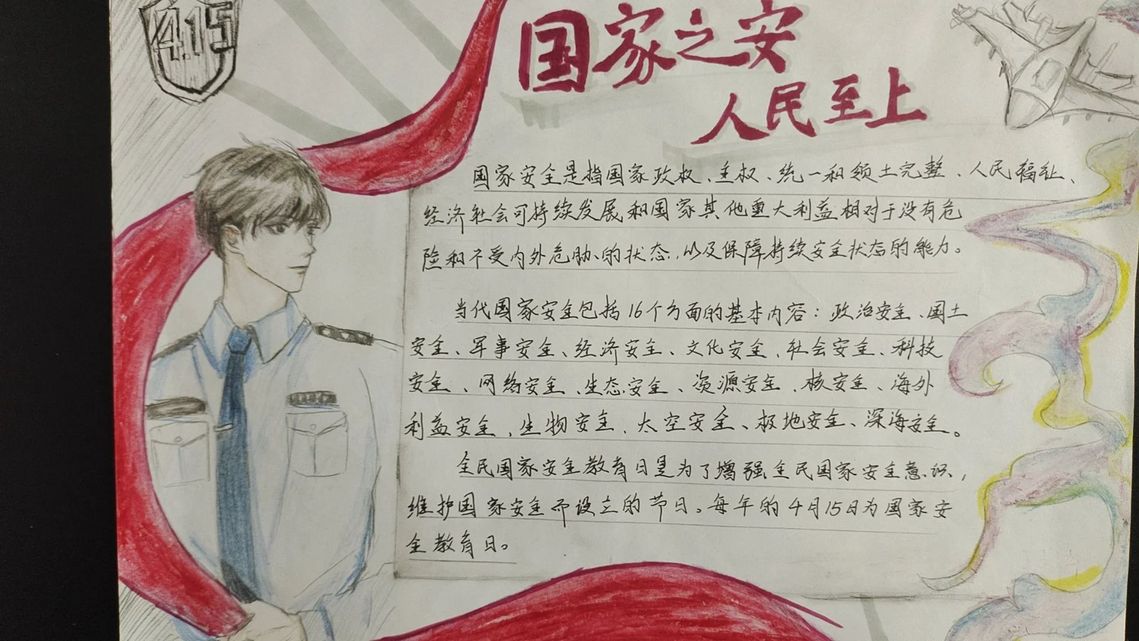 4.15
国家之安
人民至上
国家安全是指国家政权、主权、统一和领土完整、人民福祉、
经济社会可持续发展和国家其他重大利益相对于没有危
险和不受内外危胁的状态,以及保障持续安全状态的能力。
当代国家安全包括16个方面的基本内容：政治安全、国土
安全、军事安全、经济安全、文化安全、社会安全、科技
安全、网络安全、生态安全、资源安全、核安全、海外
利益安全、生物安全、太空安全、极地安全、深海安全。
全民国家安全教育日是为了增强全民国家安全意识,
维护国家安全而设立的节日。每年的4月15日为国家安
全教育日。